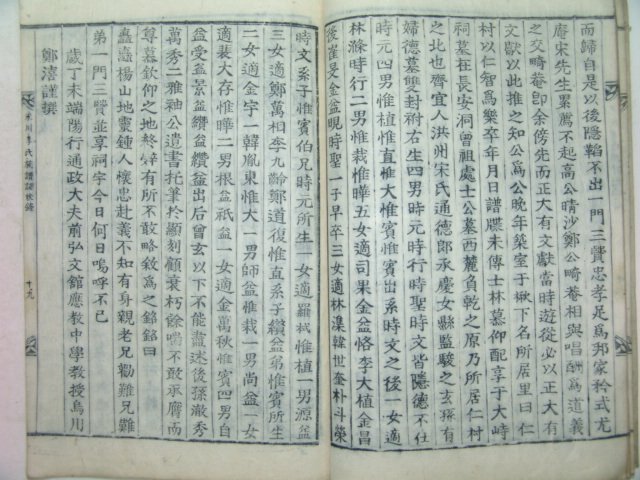 而歸自是以後隱韜不出一門三賢忠孝足爲邦家矜式尤
庵宋先生累薦不起高公晴沙鄭公畸庵相與唱酬爲道義
之交畸庵卽余傍先而正大有文獻當時遊從必以正大有
文獻以此推之知公爲公晚年築室于楸下名所居里曰仁
村以仁智爲樂卒年月日譜牒未傳士林慕仰配享于大峙
祠墓在長安洞曾祖處士公墓西麓負乾之原乃所居仁村
之北也齊宜人洪州宋氏通德郎承慶女縣監駿之玄孫有
婦德墓雙封祔右生四男時元時行時聖時文皆隱德不仕
時元四男惟楨惟直惟大惟賓出系時文之後一女適
林滌時行二男惟栽惟曄五女適司果金益恪李大植金昌
後崔旻金益晛時聖一子早卒三女適林淏韓世奎朴斗榮
時文系子惟賓伯兄時元所生一女適羅栻惟植一男源益
三女適鄭萬相李九齡鄭道復惟直系子纘益弟惟賓所生
二女適金宇一韓胤東惟大一男師益惟栽一男尚益二女
適裴大存惟曄二男根益祇益一女適金萬秋惟賓四男自
益受益景益纘益纘益出后曾玄以下不能盡述後孫澈秀
萬秀二雅袖公遺書托筆於顯刻顧衰朽餘喘不敢承膺而
尊慕欽仰之地終有所不敢略敘爲之銘銘曰
矗矗楊山地靈鍾人懷忠赴義不知有身親老兄勸難兄難
弟一門三賢並享祠宇今日何日嗚呼不已
歲丁未端陽行通政大夫前弘文館應敎中學敎授烏川
鄭濇謹撰
十九